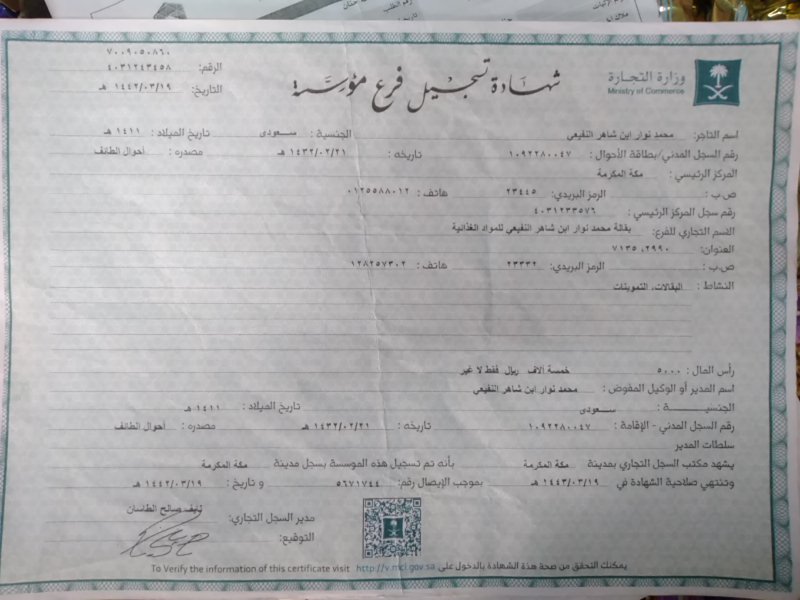 وزارة التجارة
Ministry of Commerce
شهادة تسجيل فرع مؤسسة
٧٠٠٩٠٥٠٨٦٠
الرقم: ٤٠٣١٢٤٣٤٥٨
التاريخ: ١٤٤٢/٠٣/١٩ هـ
اسم التاجر: محمد نوار ابن شاهر النفيعي الجنسية : سعودى تاريخ الميلاد : ١٤١١ هـ
رقم السجل المدني/بطاقة الأحوال : ١٠٩٢٢٨٠٠٤٧ تاريخه : ١٤٣٢/٠٢/٢١ هـ مصدره : أحوال الطائف
المركز الرئيسي : مكة المكرمة
ص.ب : الرمز البريدي: ٢٣٤٤٥ هاتف : ٠١٢٥٥٨٨٠١٢
رقم سجل المركز الرئيسي : ٤٠٣١٢٣٣٥٧٦
الاسم التجاري للفرع: بقالة محمد نوار ابن شاهر النفيعي للمواد الغذائية
العنوان: ٢٩٩٠، ٧١٣٥
ص.ب : الرمز البريدي: ٢٣٣٣٢ هاتف : ١٢٨٢٥٧٣٠٢
النشاط : البقالات، التموينات
رأس المال : ٥٠٠٠ خمسة آلاف ريال فقط لا غير
اسم المدير أو الوكيل المفوض : محمد نوار ابن شاهر النفيعي
الجنسية : سعودى تاريخ الميلاد : ١٤١١ هـ
رقم السجل المدني - الإقامة : ١٠٩٢٢٨٠٠٤٧ تاريخه : ١٤٣٢/٠٢/٢١ هـ مصدره : أحوال الطائف
سلطات المدير
يشهد مكتب السجل التجاري بمدينة مكة المكرمة بأنه تم تسجيل هذه الموسسة بسجل مدينة مكة المكرمة
وتنتهي صلاحية الشهادة في ١٤٤٣/٠٣/١٩ هـ بموجب الإيصال رقم: ٥٦٧١٧٤٤ و تاريخ : ١٤٤٢/٠٣/١٩ هـ
مدير السجل التجاري: نايف صالح الطاسان
التوقيع:
يمكنك التحقق من صحة هذة الشهادة بالدخول على http://v.mci.gov.sa To Verify the information of this certificate visit